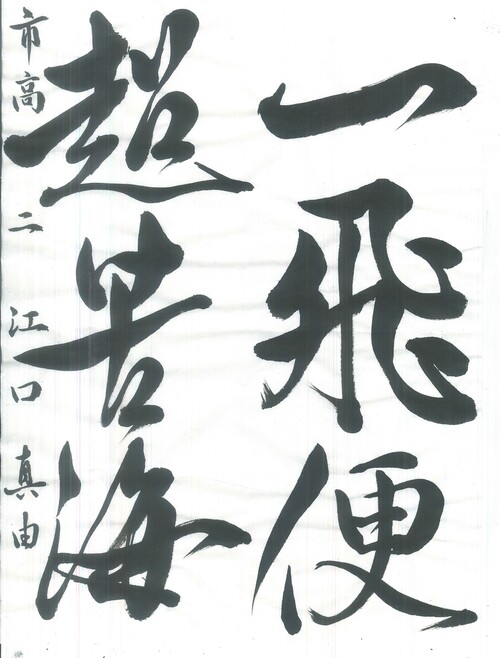 一飛便
超苦海
市高 二 江口 真由